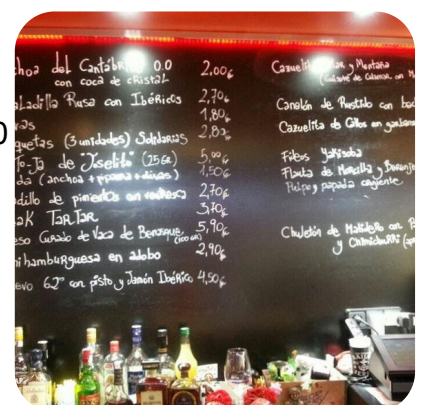 hoa del Cantábrico 0.0 2,00€
con coca de cristal
Ladilla Rusa con Ibéricos 2,70€
1,80€
quetas (3 unidades) Solidarias 2,80€
To-Ja de "Joselito" (25Gr) 5,00€
da (anchoa + + olivas) 1,50€
dillo de pimientos con ventresca 2,70€
ak TarTar 3,70€
eso Curado de Vaca de Benasque 5,90€
ni hamburguesa en adobo 2,90€
evo 62° con pisto y Jamón Ibérico 4,50€
Cazuelita Mar y Montaña
Canelón de Rustido con
Cazuelita de Callos con
Fideos Yakisoba
Flauta de Morcilla y
Pulpo y papada crujiente
Chuletón de con
y Chimichurri
0